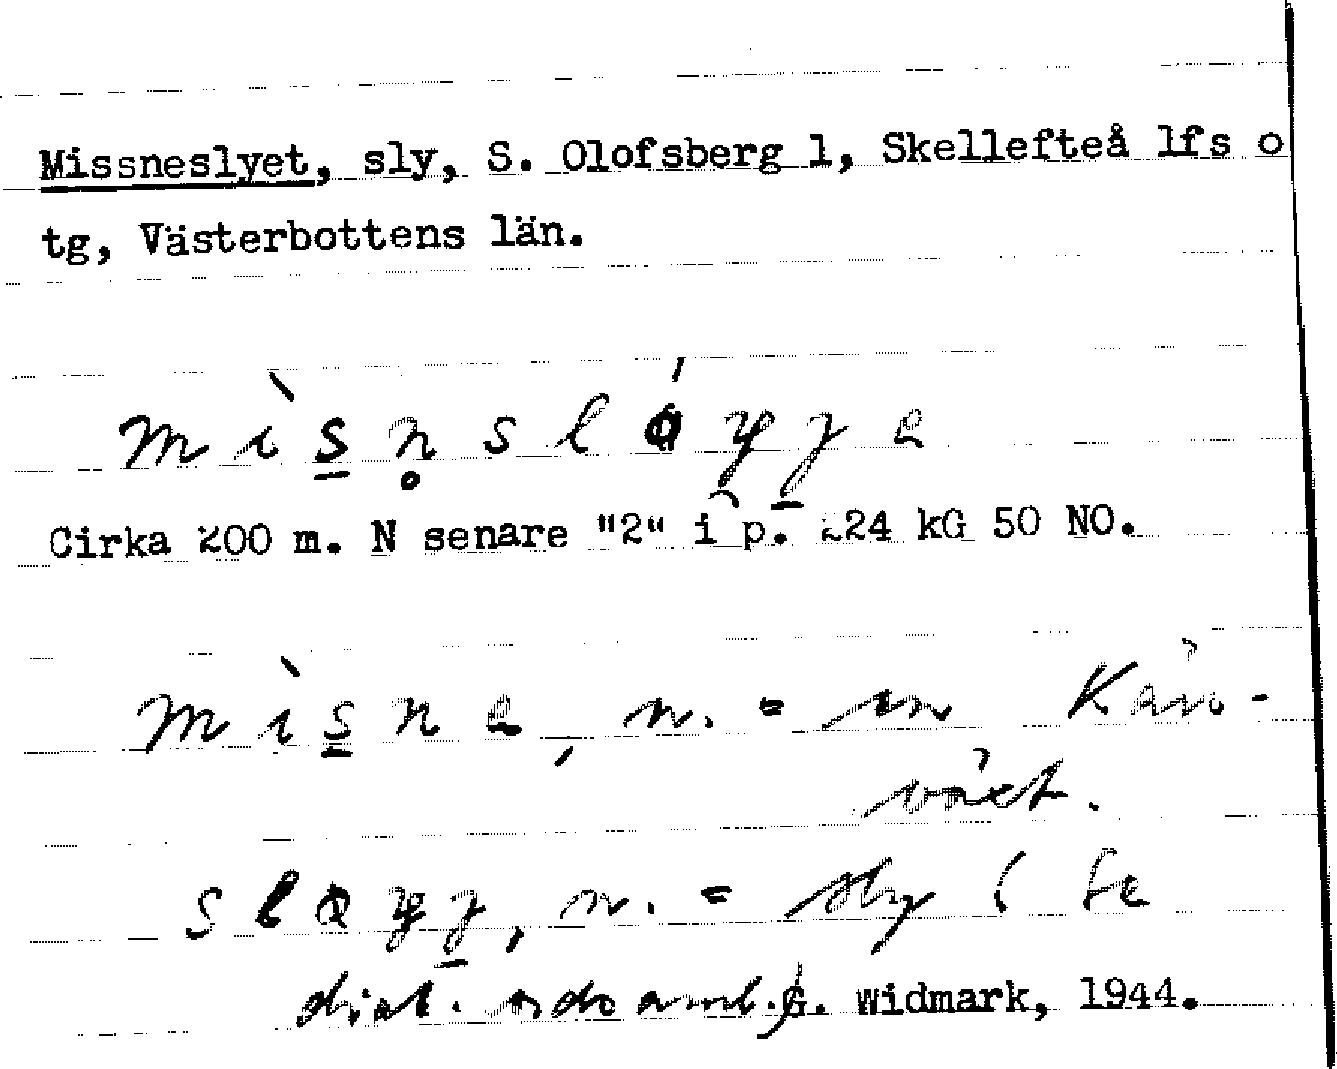 Missneslyet, sly, S. Olofsberg 1, Skellefteå lfs o
tg, Västerbottens län.
Cirka 200 m. N senare "2" i p. 224 kG 50 NO.
mìsne, n. = en Kärr-
växt.
n. = sly (se
dial. ordsaml.) G. Widmark, 1944.